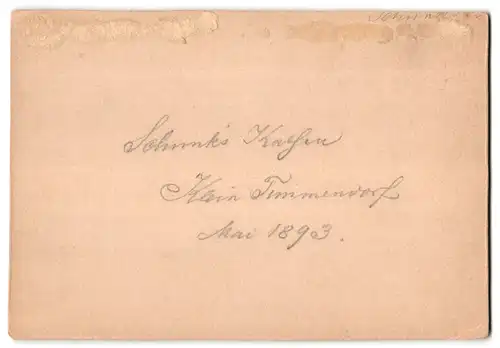 Schunk's Kathen
Klein Timmendorf
Mai 1893.